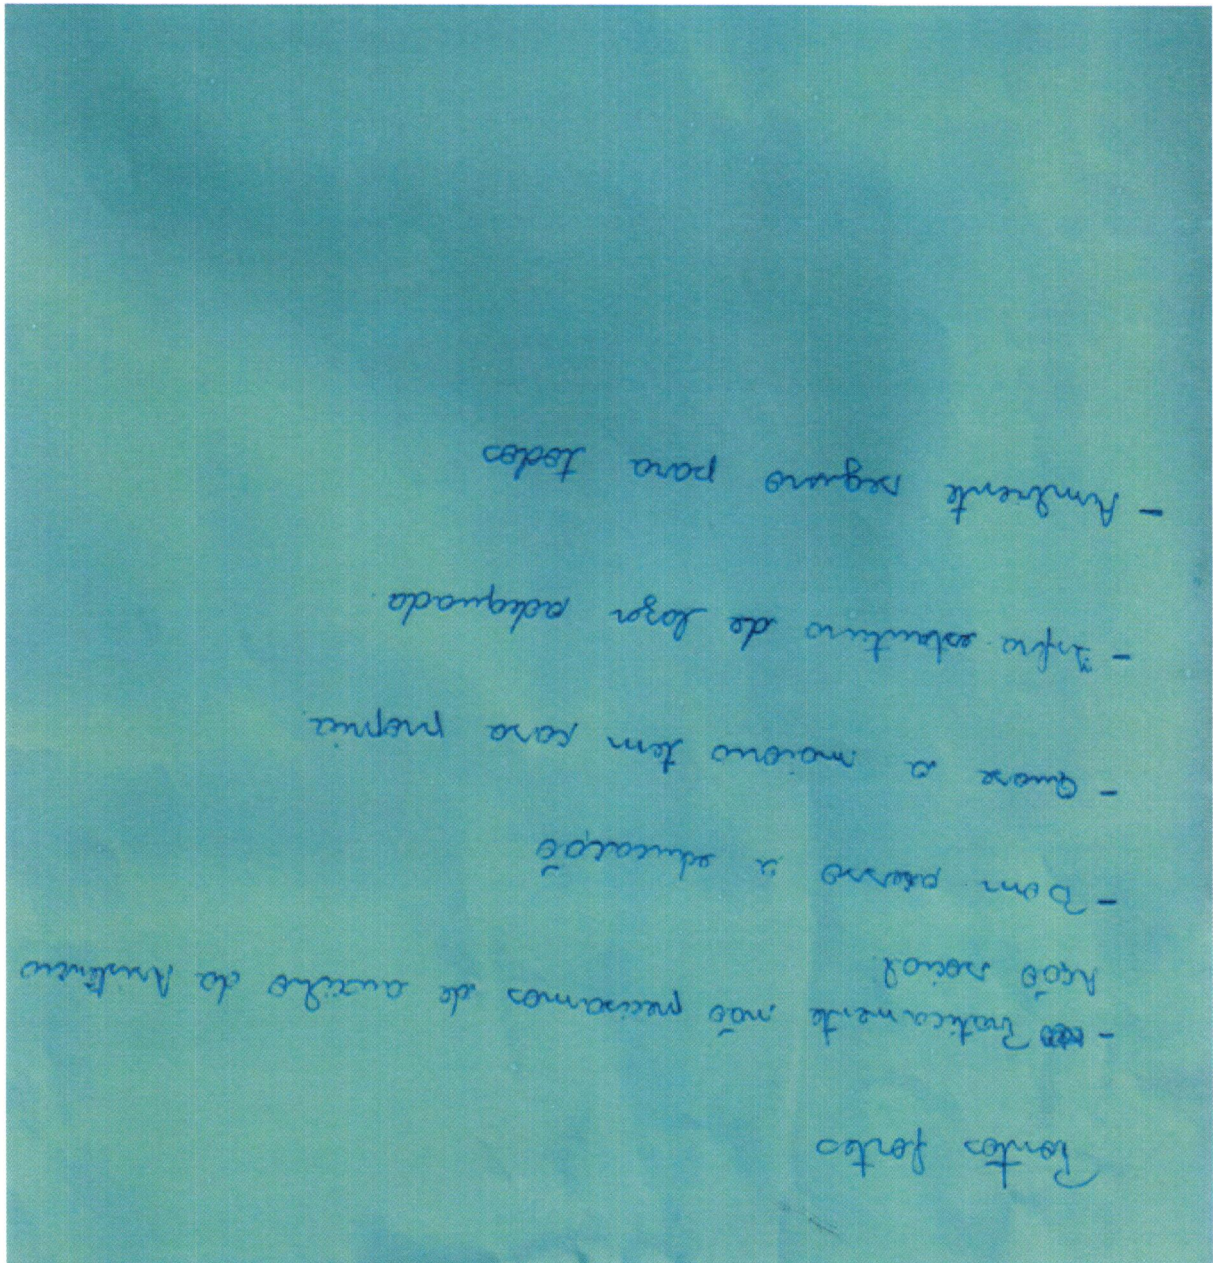 Pontos fortes
- Praticamente não precisamos de auxilio da Assistência
Ação social
- Bom acesso a educação
- Quase a maioria tem casa propria
- Infra estrutura de lazer adequada
- Ambiente seguro para todos